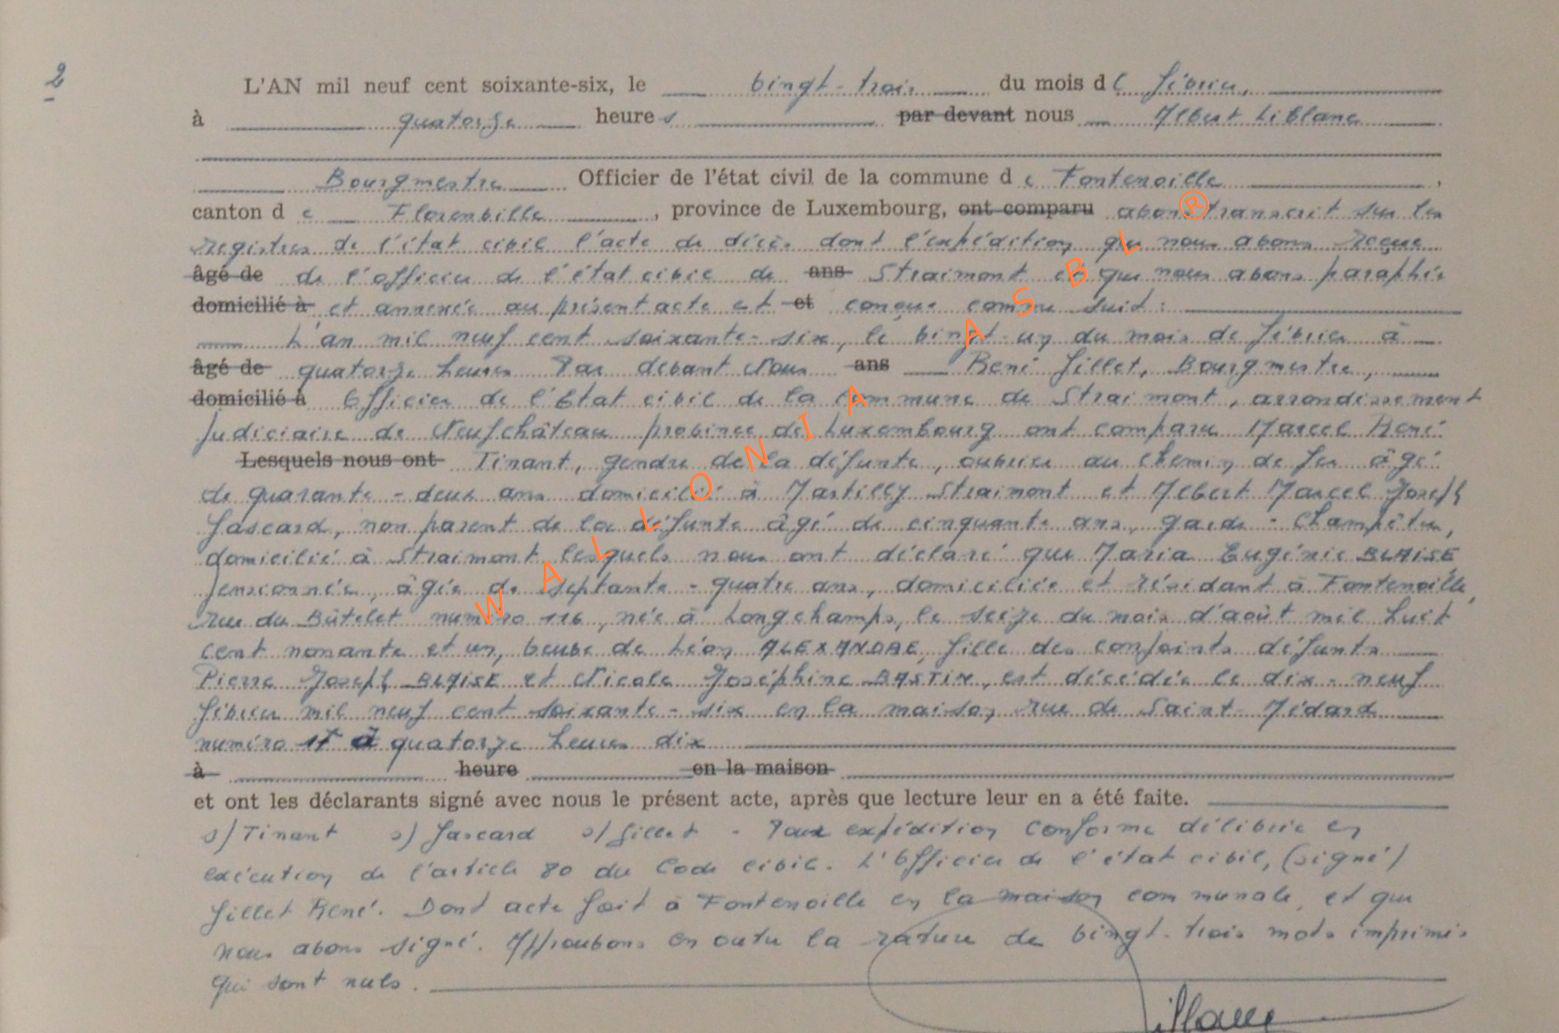 2
L'AN mil neuf cent soixante-six, le vingt-trois du mois de février,
à quatorze heures par devant nous Albert Liblanc
Bourgmestre Officier de l'état civil de la commune de Fontenoille,
canton de Florenville, province de Luxembourg, ont comparu avons transcrit sur les
registres de l'état civil l'acte de décès dont l'expédition que nous avons reçue
âgé de de l'officier de l'état civil de ans Straimont et que nous avons paraphée
domicilié à et annexée au présent acte est et conçue comme suit :
L'an mil neuf cent soixante-six, le vingt-un du mois de février à
âgé de quatorze heures Par devant Nous ans René Gillet, Bourgmestre,
domicilié à Officier de l'Etat civil de la Commune de Straimont, arrondissement
judiciaire de Neufchâteau province de Luxembourg ont comparu Marcel René
Lesquels nous ont Tinant, gendre de la défunte, ouvrier au chemin de fer âgé
de quarante-deux ans domicilié à Martilly Straimont et Albert Marcel Joseph
Gascard, non parent de la défunte âgé de cinquante ans, garde-Champêtre,
domicilié à Straimont lesquels nous ont déclaré que Maria Eugénie BLAISE
pensionnée, âgée de septante-quatre ans, domiciliée et résidant à Fontenoille,
rue du Bûtelet numéro 116, née à Longchamps, le seize du mois d'août mil huit
cent nonante et un, veuve de Léon ALEXANDRE, fille des conjoints défunts
Pierre Joseph BLAISE et Nicole Joséphine BASTIN, est décédée le dix-neuf
février mil neuf cent soixante-six en la maison rue de Saint-Médard
numéro à quatorze heures dix
à heure en la maison
et ont les déclarants signé avec nous le présent acte, après que lecture leur en a été faite.
s) Tinant s) Gascard s) Gillet - Pour expédition conforme délivrée en
exécution de l'article 80 du Code civil. L'Officier de l'état civil, (signé)
Gillet René. Dont acte fait à Fontenoille en la maison communale, et que
nous avons signé. Approuvons en outre la rature de vingt-trois mots imprimés
qui sont nuls.
WALLONIA ASBL ®